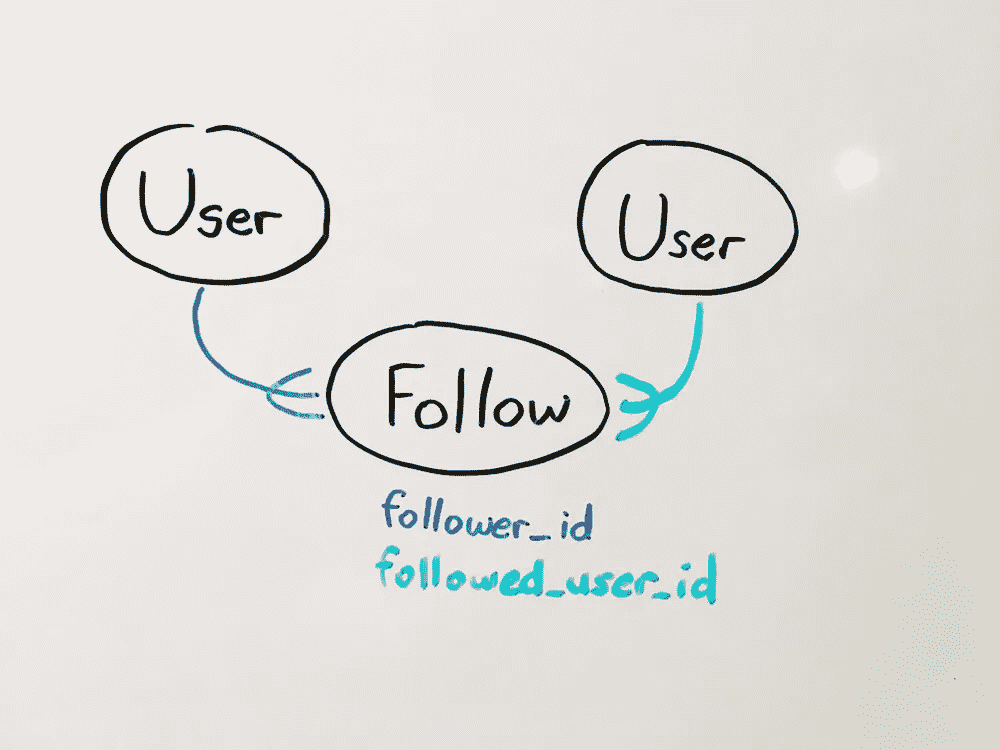 User
User
Follow
follower_id
followed_user_id